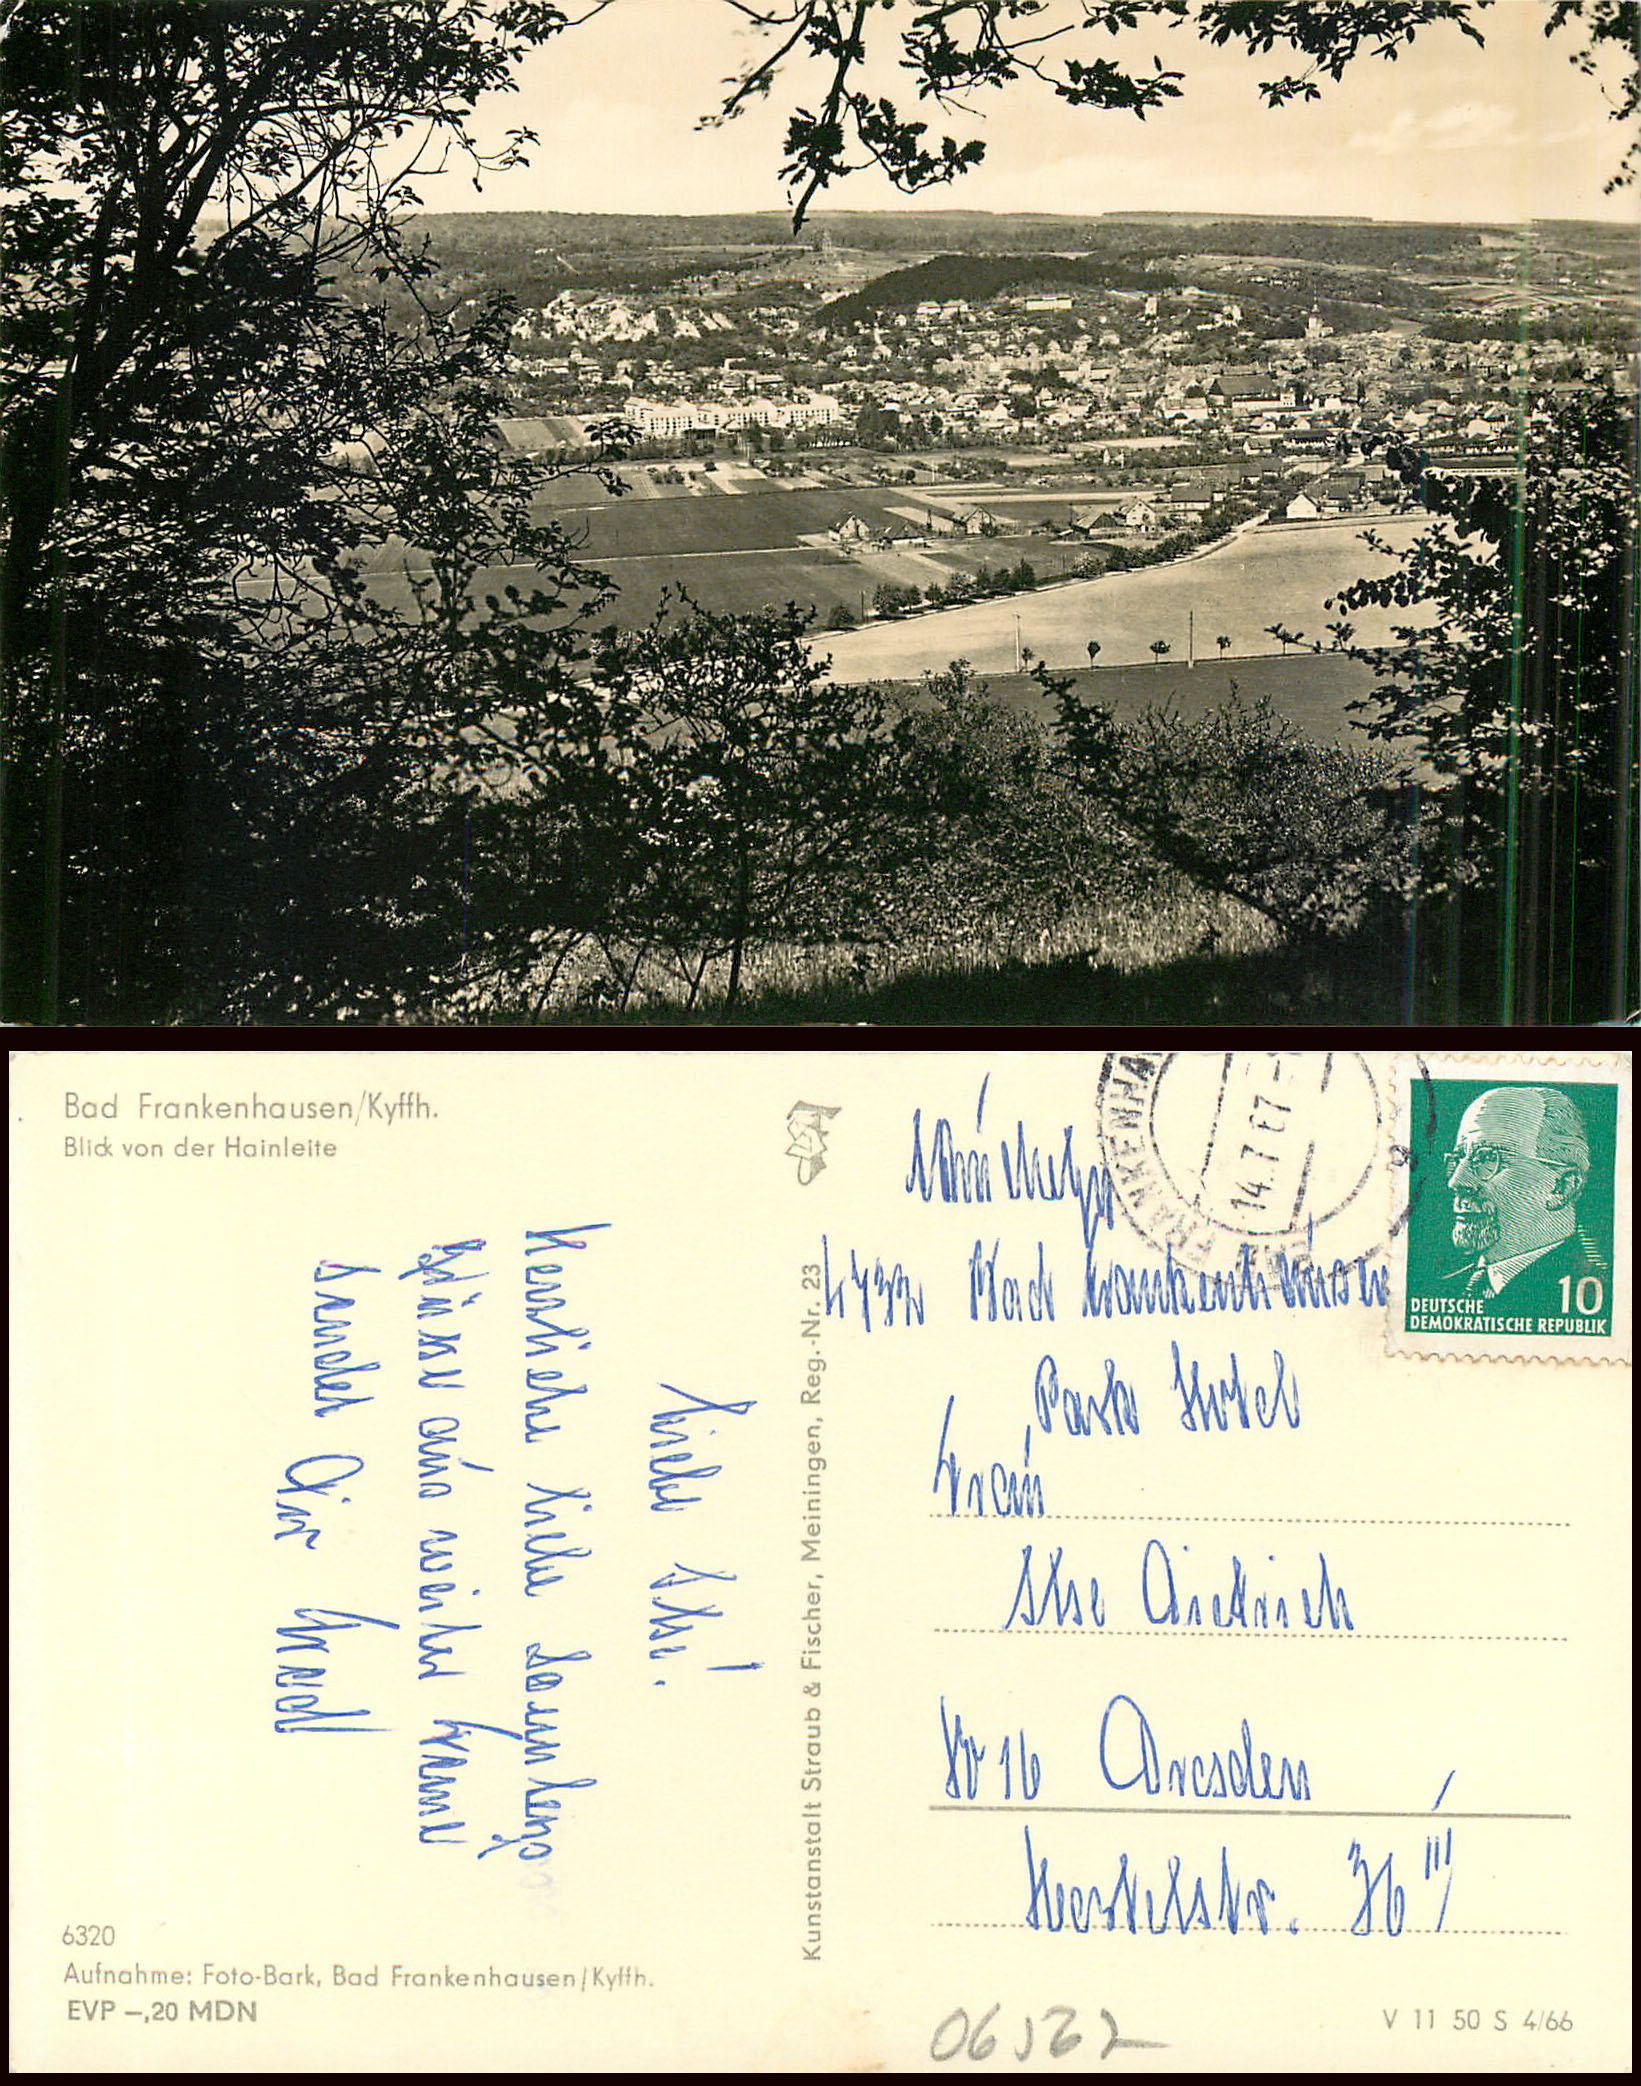 Bad Frankenhausen/Kyffh.
Blick von der Hainleite
Liebe Ilse!
Herzliche liebe
Grüsse aus meiner
sendet Dir
6320
Aufnahme: Foto-Bark, Bad Frankenhausen/Kyffh.
EVP –,20 MDN
Kunstanstalt Straub & Fischer, Meiningen, Reg.-Nr. 23
BAD FRANKENHA
14.7.67
DEUTSCHE
DEMOKRATISCHE REPUBLIK
10
4732 Bad Frankenhausen
Park Hotel
Frau
Ilse Dietrich
16 Dresden
Hertelstr. 36 III
06522
V 11 50 S 4/66